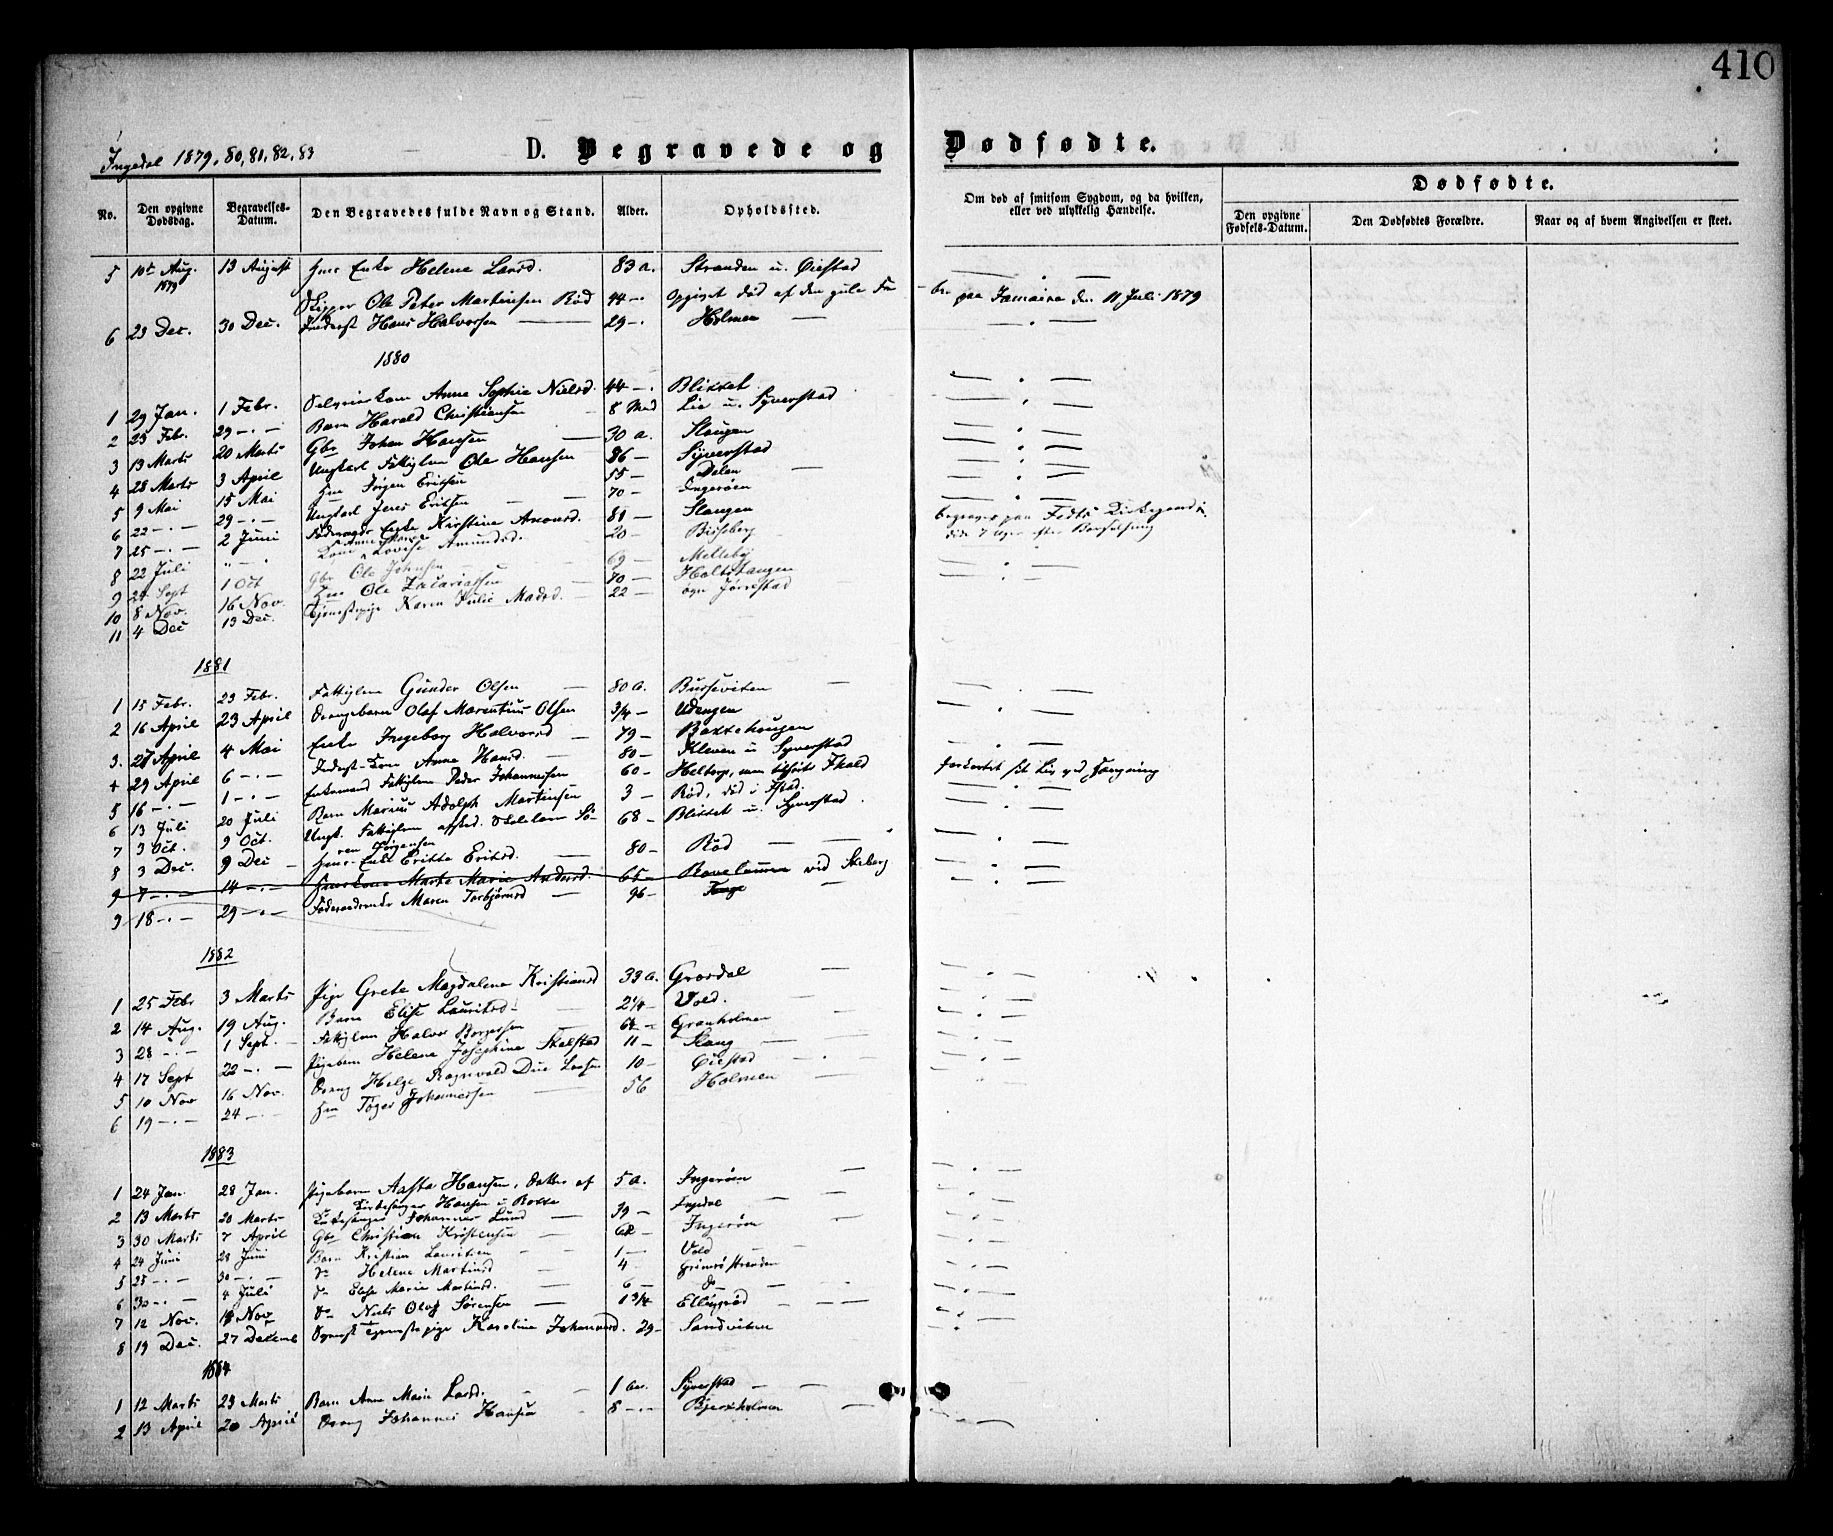 410
Ingedal 1879, 80, 81, 82, 83
D. Begravede og Dødfødte.
No. Den opgivne Dødsdag. Begravelses-Datum. Den Begravedes fulde Navn og Stand. Alder. Opholdssted. Om død af smitsom Sygdom, og da hvilken, eller ved ulykkelig Hændelse. Dødfødte.
Den opgivne Fødsels-Datum. Den Dødfødtes Forældre. Naar og af hvem Angivelsen er skeet.
5 10de Aug. 1879 13 August Enke Helene Larsd. 83 a. Stranden u. Öiestad — . —
Skipper Ole Peter Martinsen Röd 44 — Opgivet död af den gule Fe- ber paa Jamaica den 11 Juli 1879
6 23 Dec. 30 Dec. Inderst Hans Halvorsen — 29 — Holmen — . —
1880
1 29 Jan. 1 Febr. Anne Sophie Nielsd. 44 — Blikket — . —
2 23 Febr. 29 — . — Barn Harald Christiansen 8 Mnd Lie u. Syverstad — . —
3 13 Marts 20 Marts Gbr Johan Hansen — 30 a. Slangen — . —
4 28 Marts 3 April Ungkarl Fattiglem Ole Hansen 86 — Syverstad — . —
5 9 Mai 15 Mai Hm Jörgen Eriksen 55 — Delen — . —
6 22 — . — 29 — . — Ungkarl Jens Eriksen — 70 — Ingeröen — . —
7 25 — . — 2 Juni Enke Kirstine Amonsd. 81 — Slangen — . —
8 22 Juli " — . — Kone Lovise Amundsd. 20 — begraves paa Fedts Kirkegaard
9 24 Sept 1 Oct Gbr Ole Johnsen 69 — Melleby — . —
10 8 Nov. 16 Nov. Hm Ole Zacariassen 70 — Holtslangen — . —
11 4 Dec 13 Dec. Tjenestepige Karen Julie Madsd. — 22 —
1881
1 15 Febr. 23 Febr. Fattiglem Gunder Olsen — 80 a. Busseviken — . —
2 16 April 23 April Drengebarn Olaf Marentius Olsen 3/4 — Udengen — . —
3. 27 April 4 Mai Enke Ingeborg Halvorsd — 79 — Bakkehaugen
4 29 April 6 — . — Inderst-Kone Anne Hansd. — 80 — Kleven u Syverstad — . —
5 16 — . — 1 — . — Enkemand Fattiglem Peder Johannessen 60 — forkortet sit Liv ved Hængning
6 13 Juli 20 Juli Barn Marius Adolph Martinsen 3 — Röd, död i Fstad. — . —
7 3 Oct. 9 Oct. Ungk. Fattiglem afsked. Skolelærer Sö- ren Jörgensen 68 — Blikket u. Syverstad. — . —
8 3 Dec. 9 Dec — Enke Eritte Eriksd. — 80 — Röd — . —
9 7 — . — 14 — . — Kone Marte Marie Andersd. 65 — ved Skiberg — . —
9 18 — . — 29 — . — Maren Torbjörnsd — 96 — — . —
1882
1 25 Febr 3 Marts Pige Grete Magdalene Kristiansd 33 a. Grordal — . —
2 14 Aug. 19 Aug. Barn Elise Lauritsd. — 2 1/4 — Vold. — . —
3 28 — . — 1 Sept. — Fattiglem Halvor Borgersen 64 — Granholmen — . —
4 17 Sept 22 — . — Pigebarn Helene Josephine Skelstad 11 — Slang — . —
5 10 Nov 16 Nov. Dreng Helge Ragnvald Due Larsen 10 — Öiestad — . —
6 19 — . — 24 — . — Hm Töger Johannessen 56 Holmen — . —
1883
1 24 Jan. 28 Jan. Pigebarn Aasta Hansen, Datter af Kirkesanger Hansen u Bakke 5 a. Ingeröen — . —
2 13 Marts 20 Marts Kirkesanger Johannes Lund — 39 — Ingedal — . —
3 30 Marts 7 April Gbr Christian Kristensen — 62 — Ingeröen — . —
4 24 Juni 28 Juni Barn Kristian Lauritsen 1 — Vold — . —
5 25 — . — 30 — . — do Helene Martinsd. — 4 — Grimsöstranden — . —
6 30 — . — 4 Juli do Elise Marie Martinsd. — 6 — do — . —
7 12 Nov. 18 Nov do Niels Olaf Sörensen — 1 3/4 — . —
8 19 Dec. 27 Decemb Tjenestepige Karoline Johannesd. 29 — Sandviken — . —
1884
1 12 Marts 23 Marts Barn Anne Marie Larsd. 1 a. Syverstad —
2 13 April 20 April Dreng Johannes Hansen 8 — Bjerkholmen —